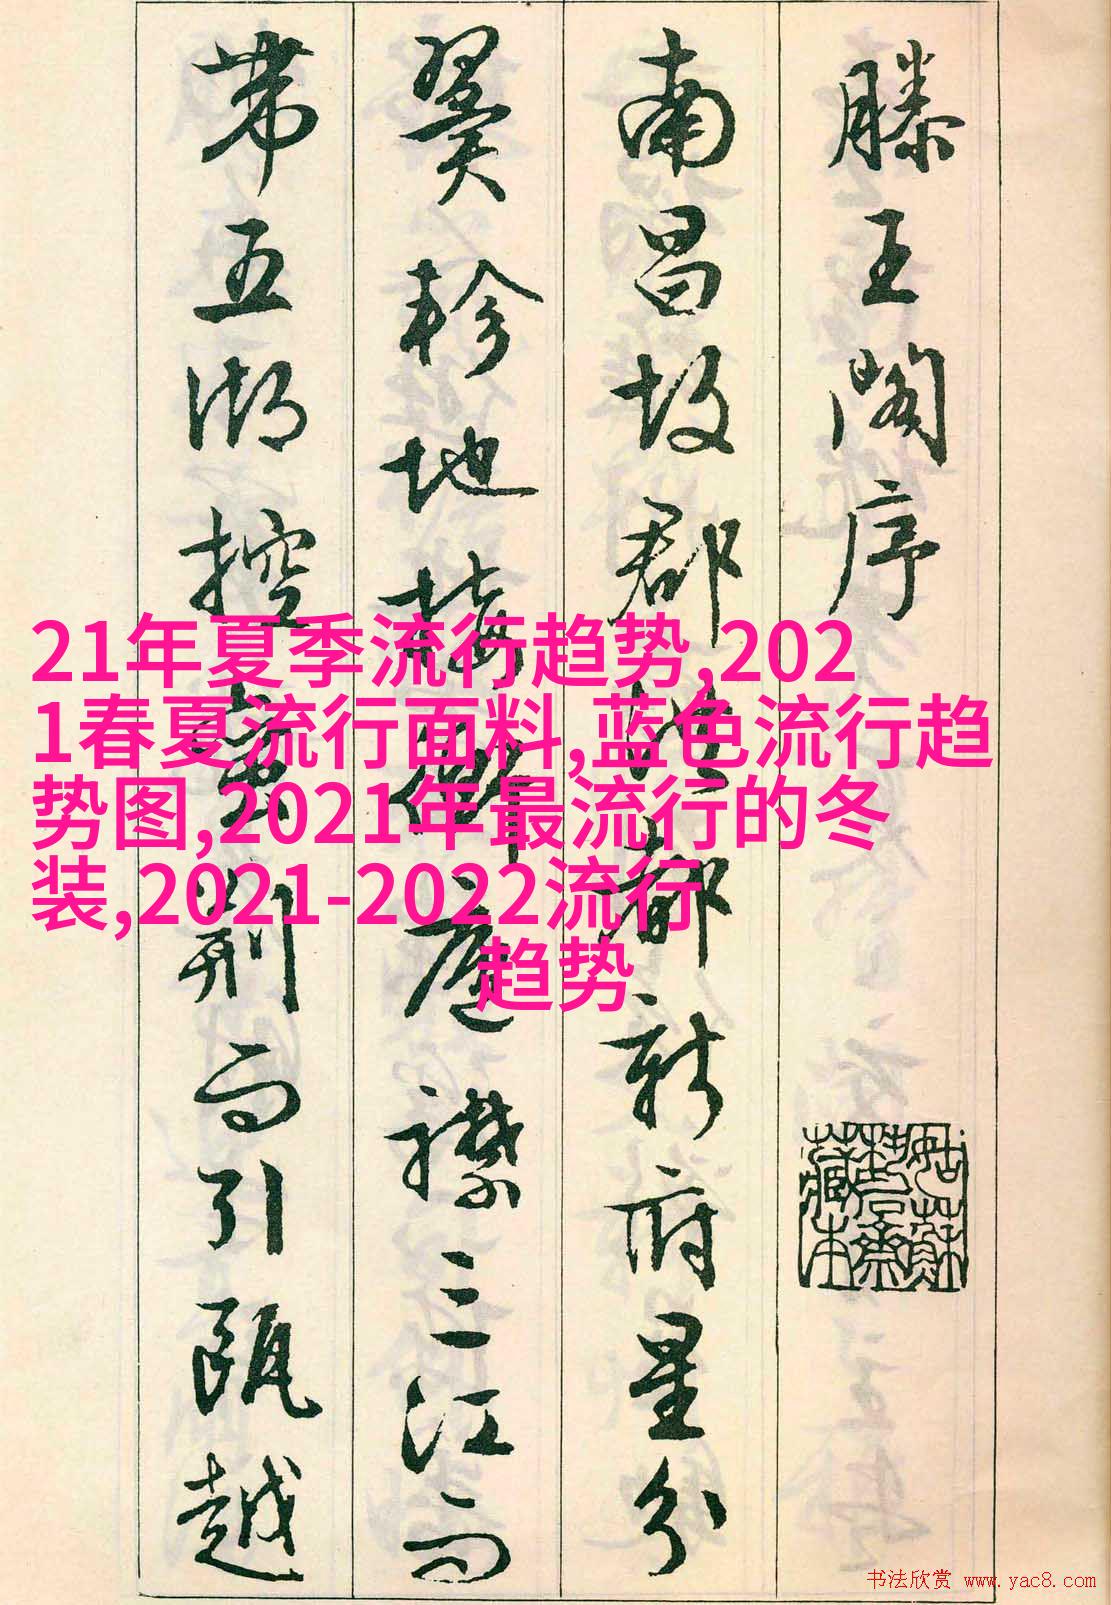 滕王阁序
南昌故郡洪都新府星分
翼轸地接衡庐襟三江而
带五湖控蛮荆而引瓯越
21年夏季流行趋势,202
1春夏流行面料,蓝色流行趋
势图,2021年最流行的冬
装,2021-2022流行
趋势
书法欣赏 www.yac8.com